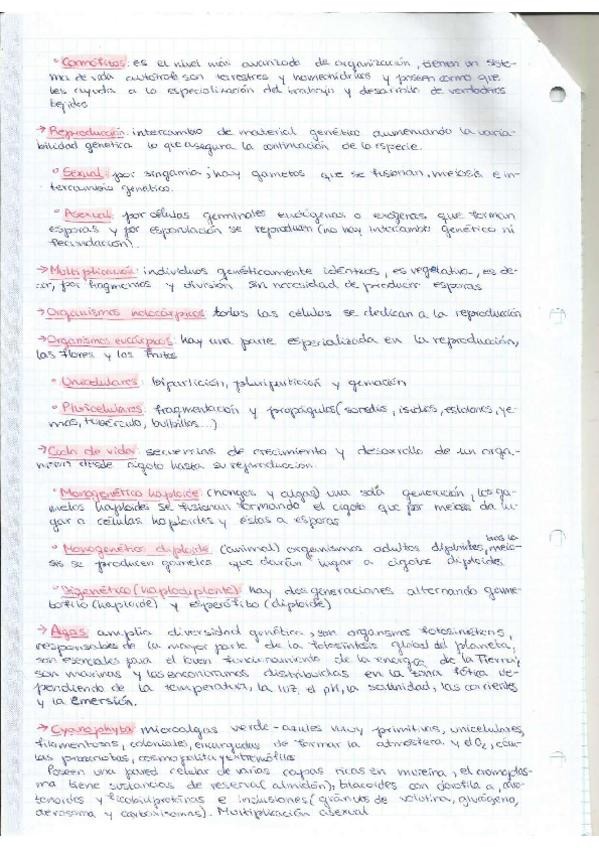 ° Cormófitos: es el nivel más avanzado de organización, tienen un siste-
ma de vida autótrofo son terrestres y homeohídricos y poseen cormo que
les ayuda a la especialización del trabajo y desarrollo de verdaderos
tejidos
→ Reproducción: intercambio de material genético aumentando la varia-
bilidad genética lo que asegura la continuación de la especie.
° Sexual: por singamia; hay gametos que se fusionan, meiosis e in-
tercambio genético.
° Asexual: por células germinales endógenas o exógenas que forman
esporas y por esporulación se reproducen (no hay intercambio genético ni
fecundación).
→ Multiplicación: individuos genéticamente idénticos, es vegetativa, es de-
cir, por fragmentos y división sin necesidad de producir esporas
→ Organismos holocárpicos todas las células se dedican a la reproducción
→ Organismos eucárpicos: hay una parte especializada en la reproducción,
las flores y los frutos
° Unicelulares: bipartición, pluripartición y gemación
° Pluricelulares: fragmentación y propágulos (soredios, isidios, estolones, ye-
mas, tubérculo, bulbillos...)
→ Ciclo de vida: secuencias de crecimiento y desarrollo de un orga-
nismo desde zigoto hasta su reproducción.
° Monogenético haploide: (hongos y algas) una sola generación, los ga-
metos haploides se fusionan formando el cigoto que por meiosis da lu-
gar a células haploides y éstas a esporas
° Monogenético diploide (animal) organismos adultos diploides, tras la meio-
sis se producen gametos que darán lugar a cigotos diploides
° Digenético (haplodiplonte) hay dos generaciones alternando game-
tofito (haploide) y esporofito (diploide)
→ Agas amplia diversidad genética, son organismos fotosintéticos,
responsables de la mayor parte de la fotosíntesis global del planeta,
son esenciales para el buen funcionamiento de la energía de la Tierra;
son marinas y las encontramos distribuidas en la zona fótica de-
pendiendo de la temperatura, la luz, el pH, la salinidad, las corrientes
y la emersión.
→ Cyanophyta microalgas verde-azules muy primitivas, unicelulares,
filamentosas, coloniales, encargadas de formar la atmósfera y el O₂, célu-
las procariotas, cosmopolita y extremófila
Poseen una pared celular de varias capas ricas en mureína, el cromoplas-
ma tiene sustancias de reserva (almidón), tilacoides con clorofila a, caro-
tenoides y ficobiliproteínas e inclusiones (gránulos de volutina, glucógeno,
aerosoma y carboxisomas). Multiplicación asexual